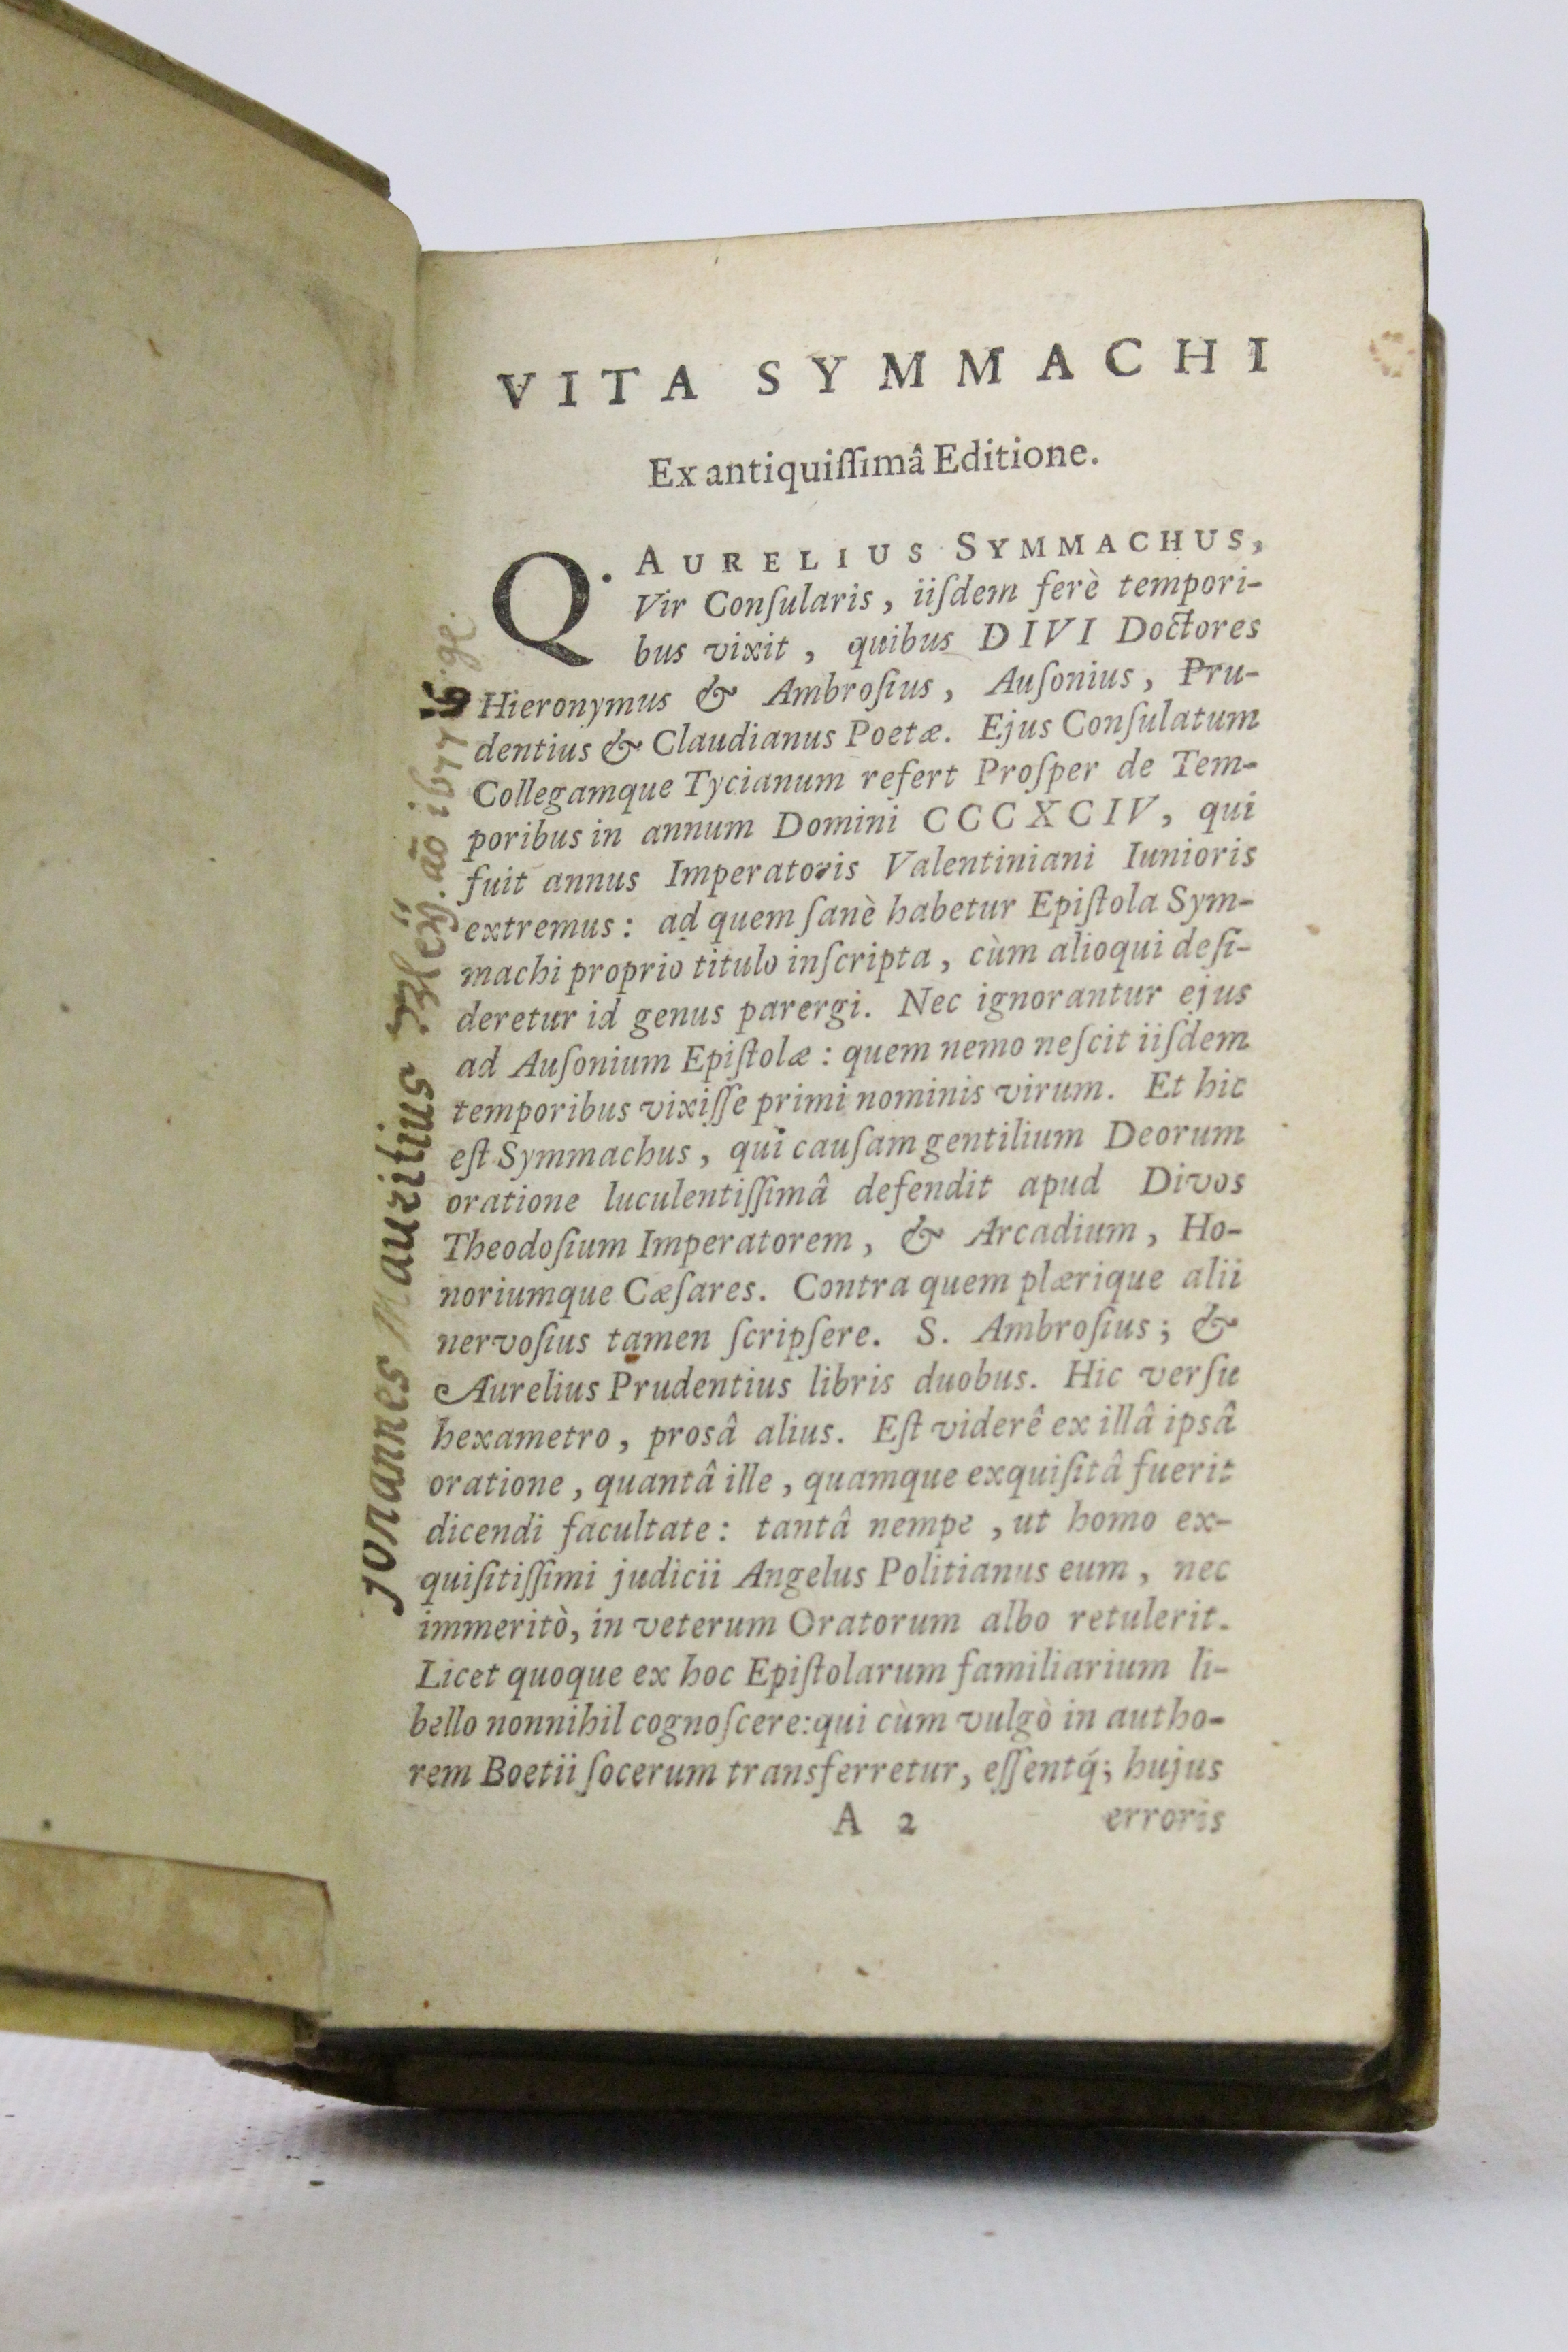 VITA SYMMACHI
Ex antiquiſſimâ Editione.
Q. AURELIUS SYMMACHUS,
Vir Conſularis, iiſdem ferè tempori-
bus vixit, quibus DIVI Doctores
Hieronymus & Ambroſius, Auſonius, Pru-
dentius & Claudianus Poetæ. Ejus Conſulatum
Collegamque Tycianum refert Proſper de Tem-
poribus in annum Domini CCCXCIV, qui
fuit annus Imperatoris Valentiniani Iunioris
extremus: ad quem ſanè habetur Epiſtola Sym-
machi proprio titulo inſcripta, cùm alioqui deſi-
deretur id genus parergi. Nec ignorantur ejus
ad Auſonium Epiſtolæ: quem nemo neſcit iiſdem
temporibus vixiſſe primi nominis virum. Et hic
eſt Symmachus, qui cauſam gentilium Deorum
oratione luculentiſſimâ defendit apud Divos
Theodoſium Imperatorem, & Arcadium, Ho-
noriumque Cæſares. Contra quem plærique alii
nervoſius tamen ſcripſere. S. Ambroſius; &
Aurelius Prudentius libris duobus. Hic verſu
hexametro, prosâ alius. Eſt viderê ex illâ ipsâ
oratione, quantâ ille, quamque exquiſitâ fuerit
dicendi facultate: tantâ nempe, ut homo ex-
quiſitiſſimi judicii Angelus Politianus eum, nec
immeritò, in veterum Oratorum albo retulerit.
Licet quoque ex hoc Epiſtolarum familiarium li-
bello nonnihil cognoſcere: qui cùm vulgò in autho-
rem Boetii ſocerum transferretur, eſſentq́; hujus
A 2 erroris
Johannes Mauritius